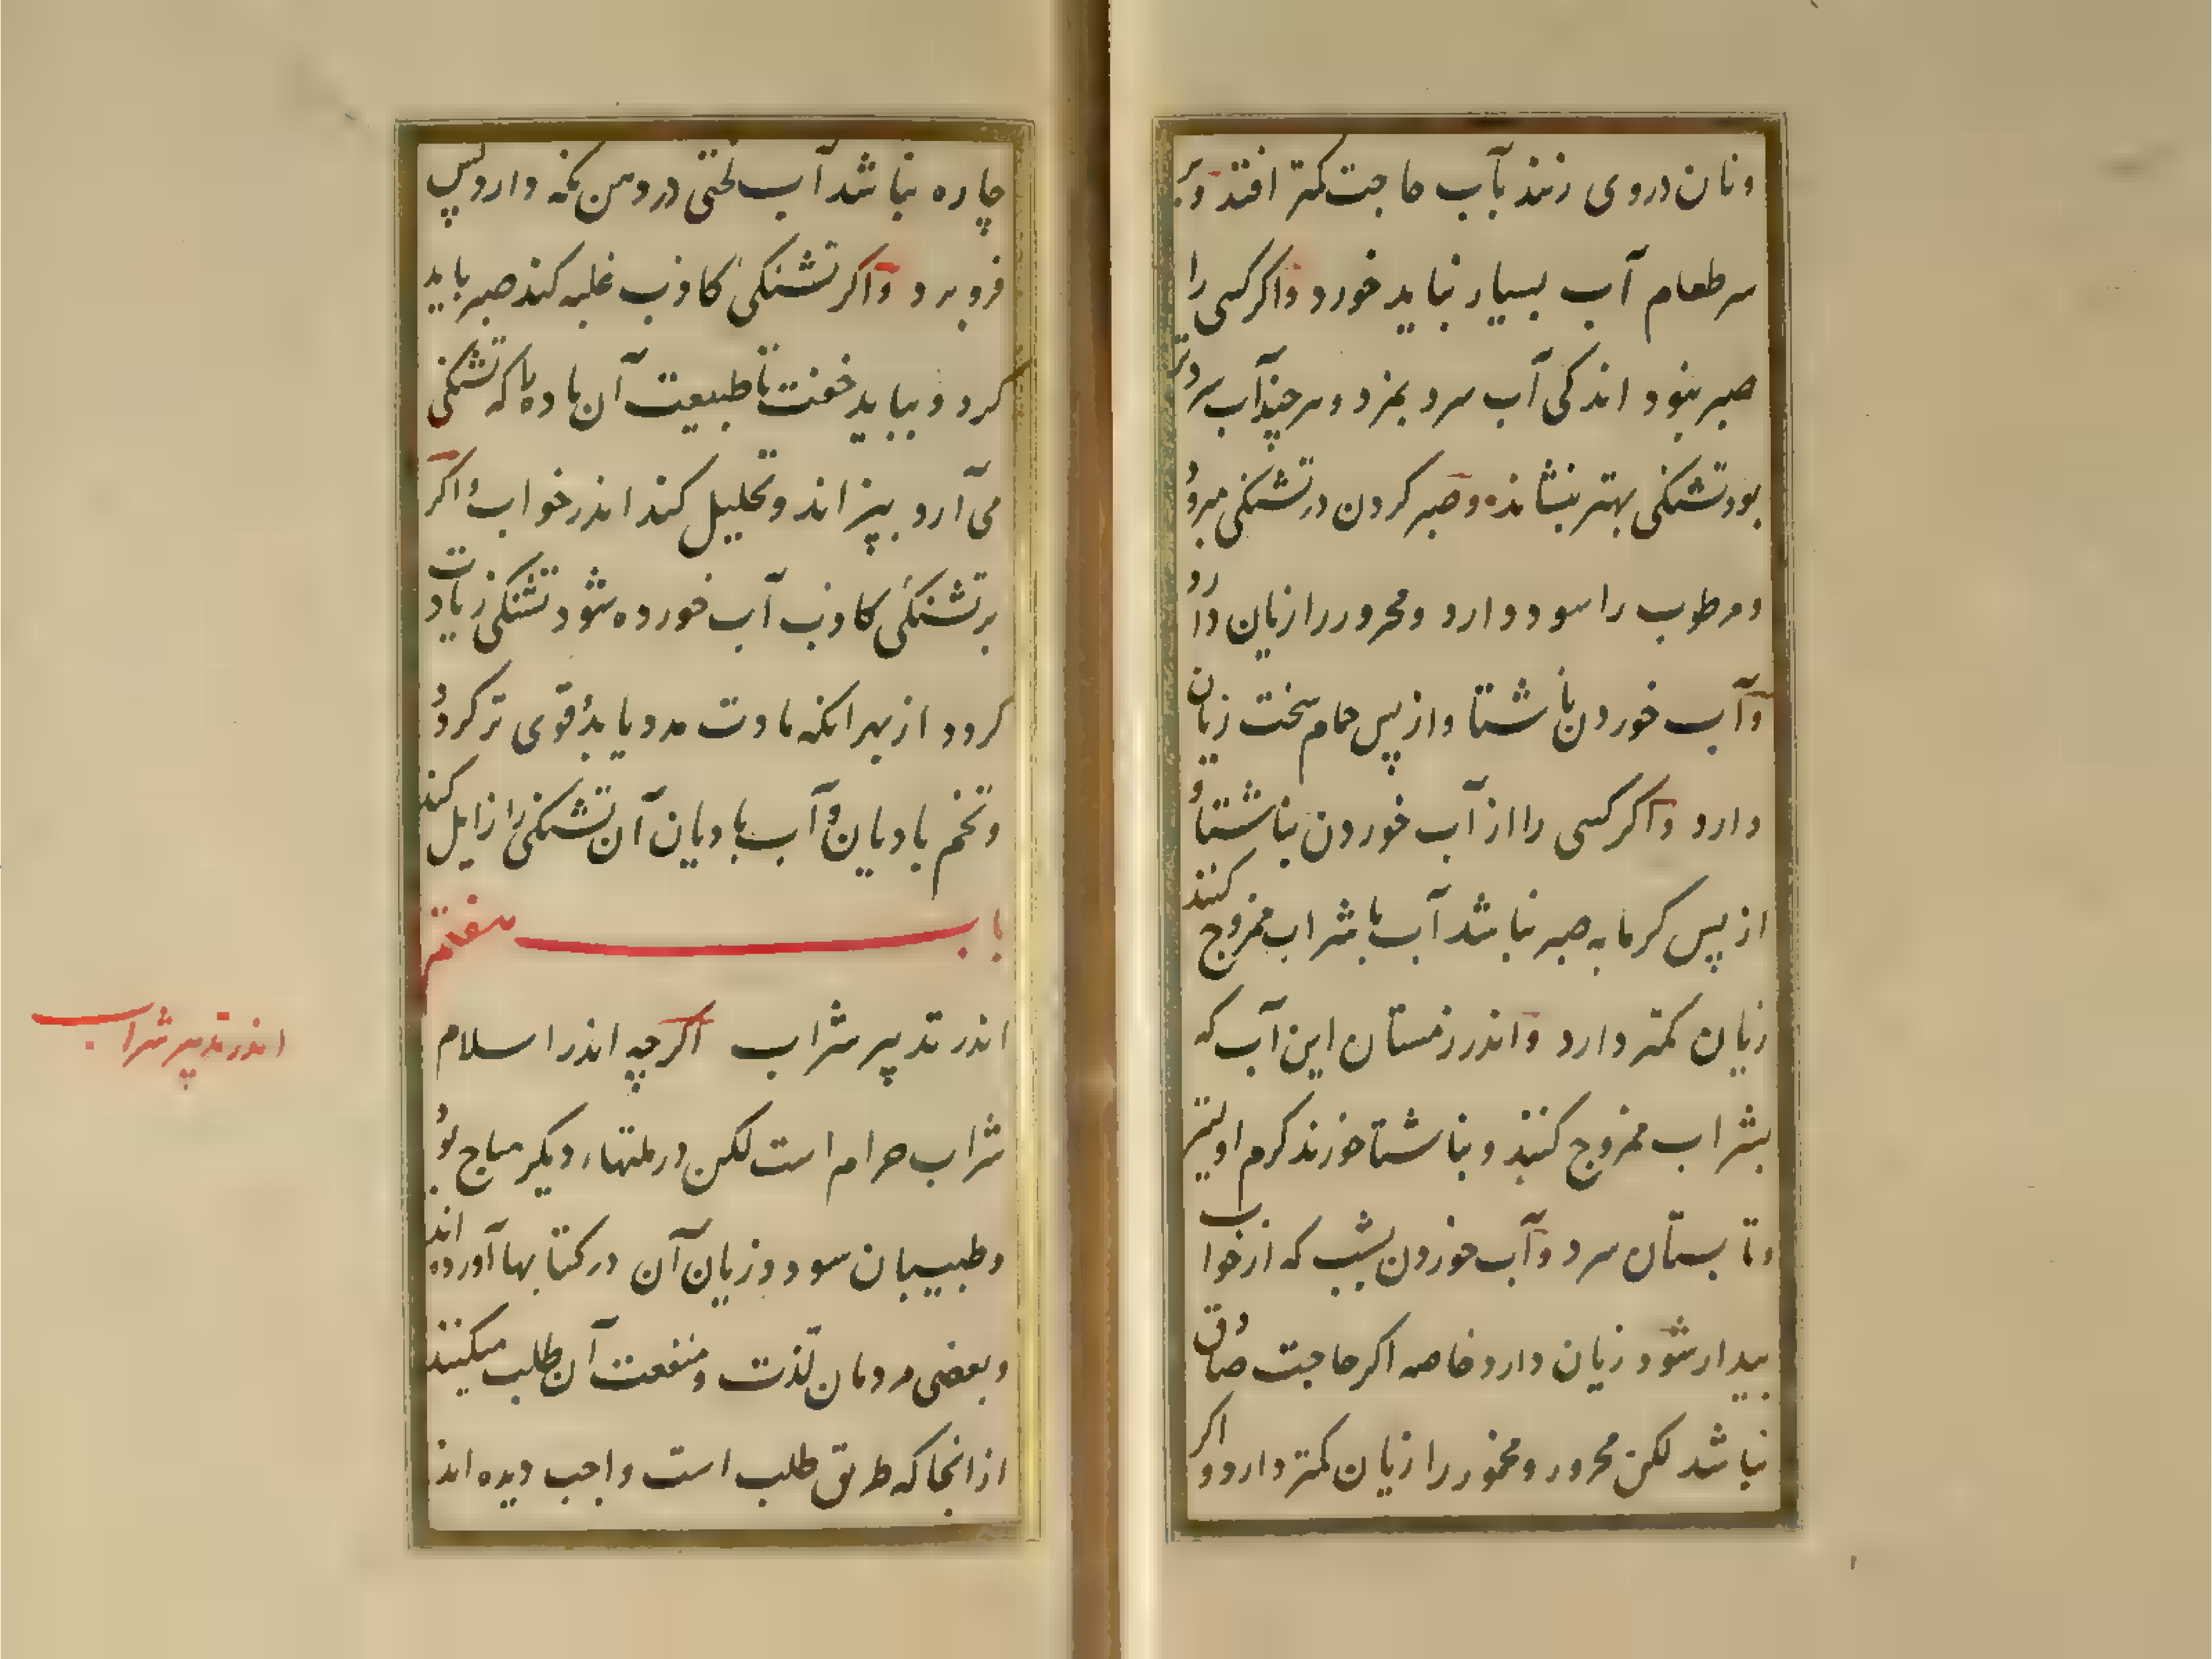 ونان دروی زنند بآب حاجت کمتر افتد وبر
سر طعام آب بسیار نباید خورد واکر کسی را
صبر نبود اندکی آب سرد بمزد وهر چند آب سردتر
بود تشنکی بهتر بنشاند وصبر کردن در تشنکی مبرود
ومرطوب را سود دارد ومحرور را زیان دارد
وآب خوردن ناشتا واز پس حمام سخت زیان
دارد واکر کسی را از آب خوردن بناشتا و
از پس کرمابه صبر نباشد آب با شراب ممزوج کنند
زیان کمتر دارد واندر زمستان این آب که
بشراب ممزوج کنند وبناشتا خورند کرم اولیتر
وتابستان سرد وآب خوردن بشب که از خواب
بیدار شود زیان دارد خاصه اکر حاجت صادق
نباشد لکن محرور ومخمور را زیان کمتر دارد واکر
چاره نباشد آب لختی در دهن نکه دارد پس
فرو برد واکر تشنکی کاذب غلبه کند صبر باید
کرد و بباید خفت تا طبیعت آن ماده را که تشنکی
می آرد بپزاند وتحلیل کند اندر خواب اکر
بر تشنکی کاذب آب خورده شود تشنکی زیادت
کردد از بهر انکه مادت مدد یابد قوی تر کردد
وتخم بادیان وآب بادیان آن تشنکی را زایل کند
باب هفتم
اندر تدبیر شراب اکرچه اندر اسلام
شراب حرام است لکن در ملتهاء دیکر مباح بود
وطبیبان سود وزیان آن در کتابها آورده اند
وبعضی مردمان لذت ومنفعت آن طلب میکنند
از انجا که طریق طلب است واجب دیده اند
اندر تدبیر شراب